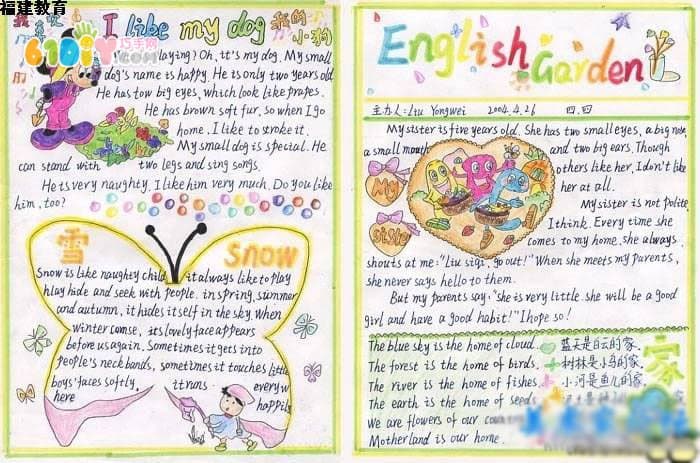 福建教育
I like my dog 我的
小狗
61DIY 巧手网
playing? Oh, it's my dog. My small
dog's name is happy. He is only two years old
He has tow big eyes, which look like prapes.
He has brown soft fur, so when I go
home. I like to stroke it.
My small dog is special. He
can stand with two legs and sing songs.
He is very naughty. I like him very much. Do you like
him, too?
雪 Snow
Snow is like naughty child it always like to play
hide and seek with people. in spring, summer
and autumn, it hides itself in the sky. When
winter comse, its lovely face appears
before us again. Sometimes it gets into
people's neck bands, sometimes it touches little
boys' faces softly. it runs everyw
here happily
English Garden
主办人: Liu Yongwei 2004.4.26 四.四
My sister is five years old. She has two small eyes, a big nose,
a small mouth and two big ears. Though
others like her, I don't like
her at all.
My Sister
My sister is not polite,
I think. Every time she
comes to my home, she always
shouts at me: "Liu siqi, go out!" When she meets my parents,
she never says hello to them.
But my parents say, "she is very little. she will be a good
girl and have a good habit!" I hope so!
The blue sky is the home of cloud. 蓝天是白云的家.
The forest is the home of birds. 树林是小鸟的家.
The river is the home of fishes. 小河是鱼儿的家.
The earth is the home of seeds.
We are flowers of our
Motherland is our home.
家